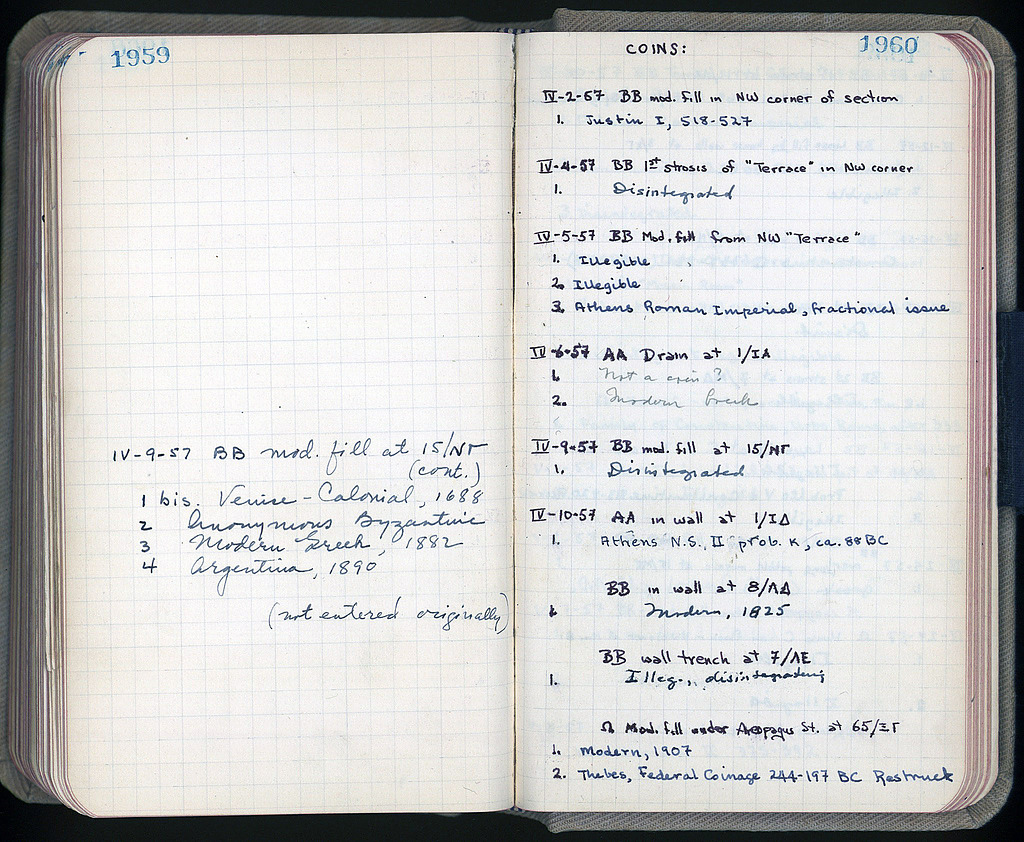 1959
IV-9-57 BB mod. fill at 15/ΝΓ
(cont.)
1 bis. Venise - Colonial, 1688
2 Anonymous Byzantine
3 Modern Greek, 1882
4 Argentina, 1890
(not entered originally)
COINS:
1960
IV-2-57 BB mod. fill in NW corner of section
1. Justin I, 518-527
IV-4-57 BB 1st strosis of "Terrace" in NW corner
1. Disintegrated
IV-5-57 BB Mod. fill from NW "Terrace"
1. Illegible
2. Illegible
3. Athens Roman Imperial, fractional issue
IV-6-57 AA Drain at 1/ΙΔ
1. Not a coin?
2. Modern Greek
IV-9-57 BB mod. fill at 15/ΝΓ
1. Disintegrated
IV-10-57 AA in wall at 1/ΙΔ
1. Athens N.S., II prob. K, ca. 88 BC
BB in wall at 8/ΛΔ
1. Modern, 1825
BB wall trench at 7/ΛΕ
1. Illeg., disintegrating
Ω Mod. fill under Areopagus St. at 65/ΞΓ
1. Modern, 1907
2. Thebes, Federal Coinage 244-197 BC Restruck